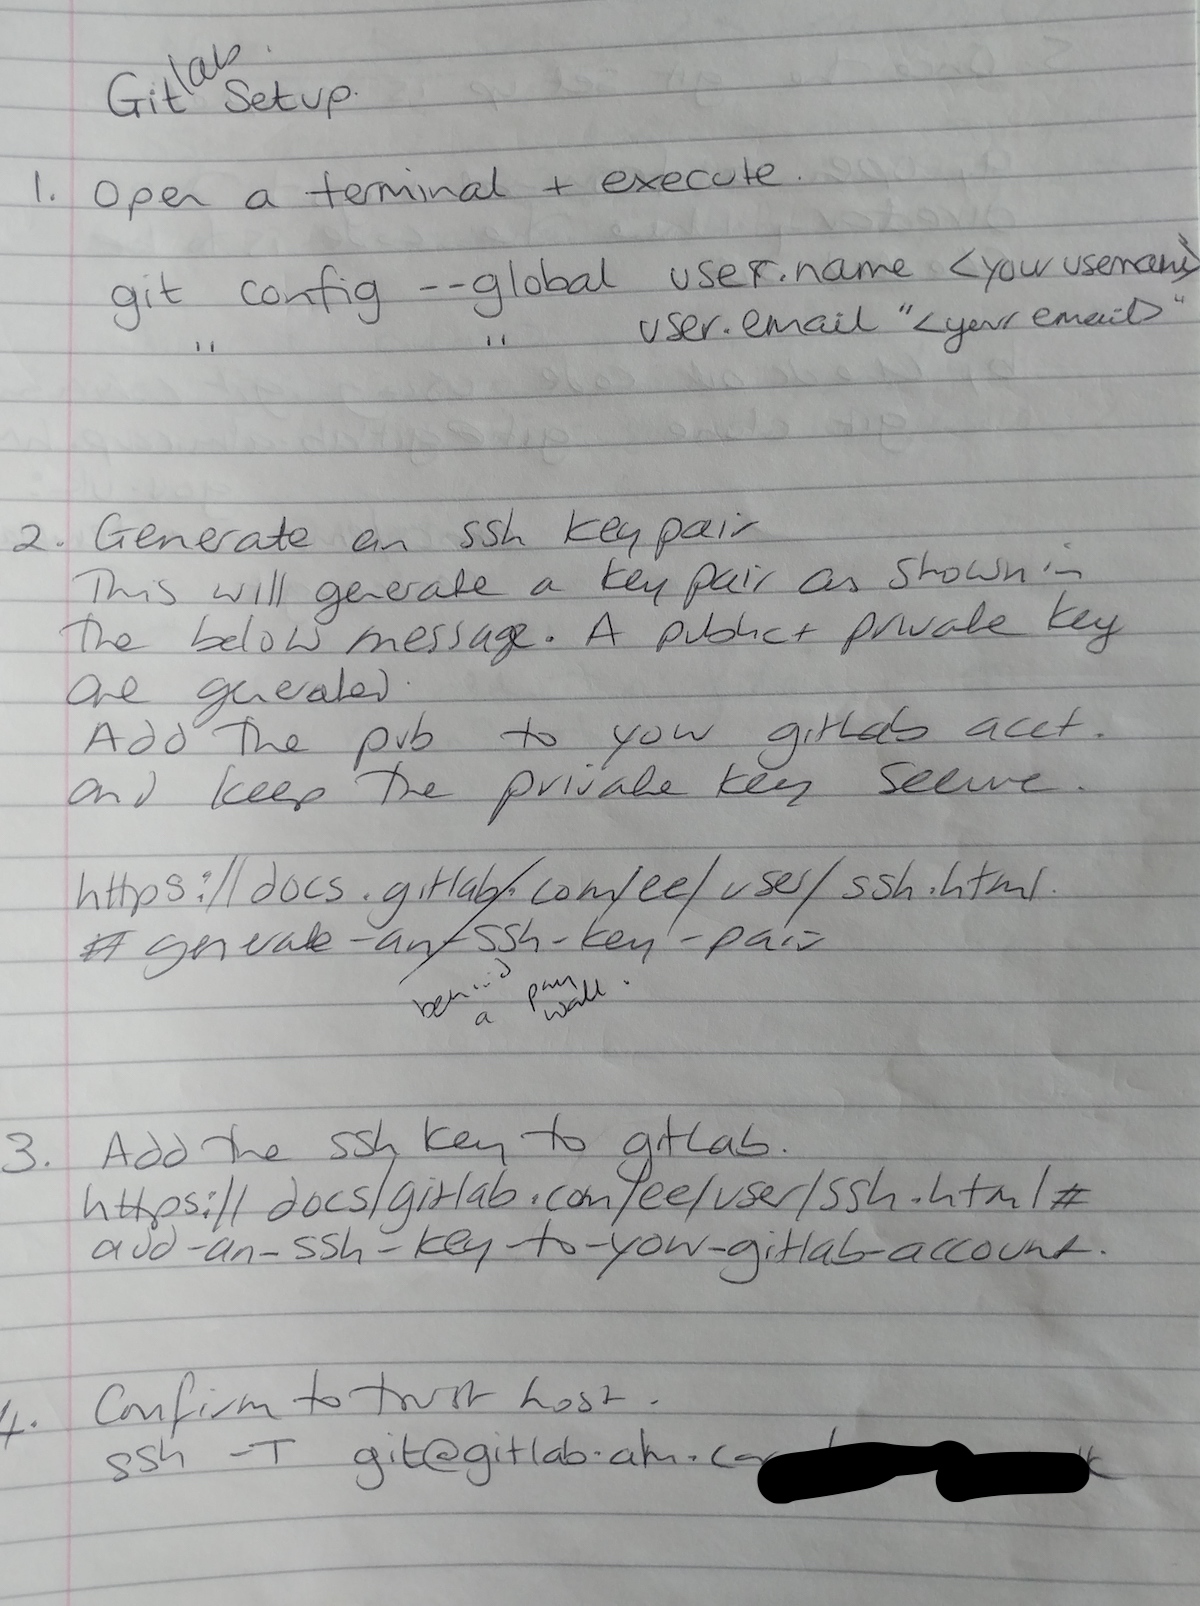 Gitlab Setup.
1. Open a terminal + execute.
git config --global user.name <your username>
" " user.email "<your email>"
2. Generate an ssh key pair
This will generate a key pair as shown in
the below message. A public + private key
are generated.
Add the pub to your gitlab acct.
and keep the private key secure.
https://docs.gitlab.com/ee/user/ssh.html.
#generate-an-ssh-key-pair
behind a pay wall.
3. Add the ssh key to gitlab.
https://docs/gitlab.com/ee/user/ssh.html#
add-an-ssh-key-to-your-gitlab-account.
4. Confirm to trust host.
ssh -T git@gitlab.